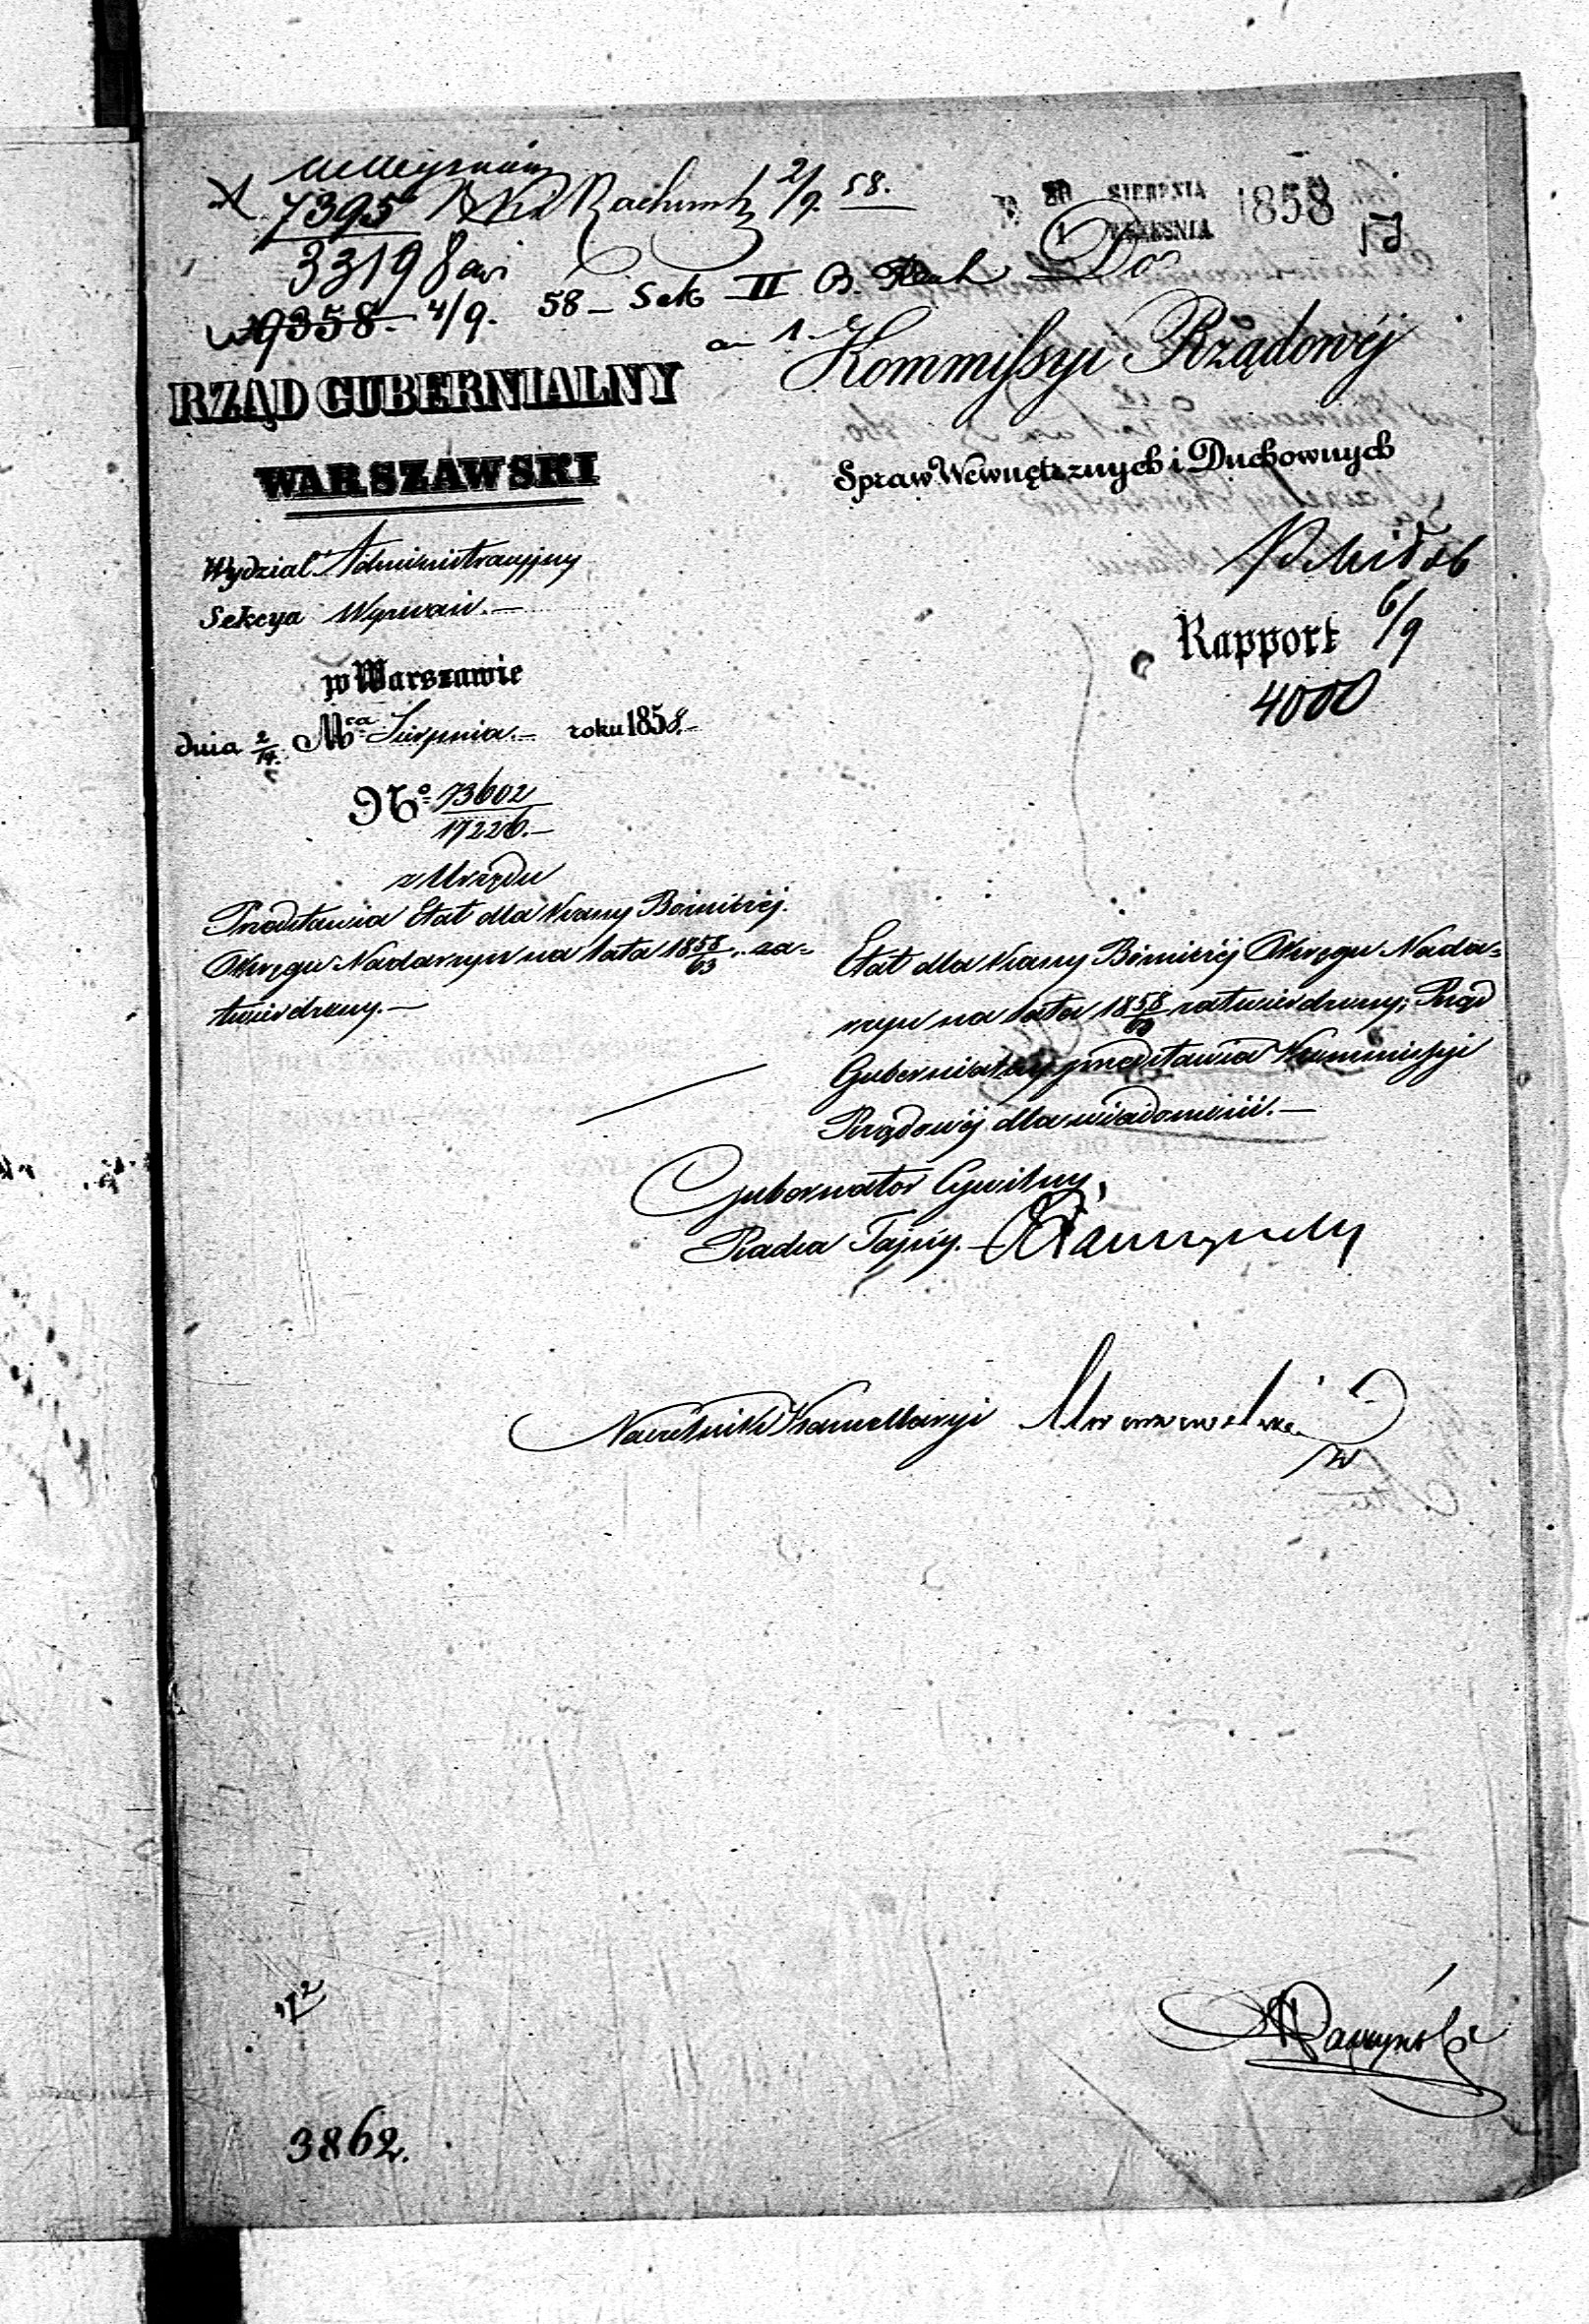 7395
33198
9358 4/9. 58 – Sek II
2/9. 58.
30 SIERPNIA 1858
1 WRZEŚNIA
Do
Kommyssyi Rządowéj
Spraw Wewnętrznych i Duchownych
6/9
Rapport
4000
RZĄD GUBERNIALNY
WARSZAWSKI
Wydział Administracyjny
Sekcya Wyznań.—
w Warszawie
dnia 2/14 Mca Sierpnia.— roku 1858.—
No 73602
19226.—
z Urzędu
Przedstawia Etat dla Kassy Bóżniczéj
Okręgu Nadarzyn na lata 1858/63 za=
twierdzony.—
Etat dla Kassy Bóżniczéj Okręgu Nada=
rzyn na lata 1858/63 zatwierdzony; Rząd
Gubernialny przedstawia Kommissyi
Rządowéj dla wiadomości.—
Gubernator Cywilny,
Radca Tajny.—
Naczelnik Kancellaryi
3862.